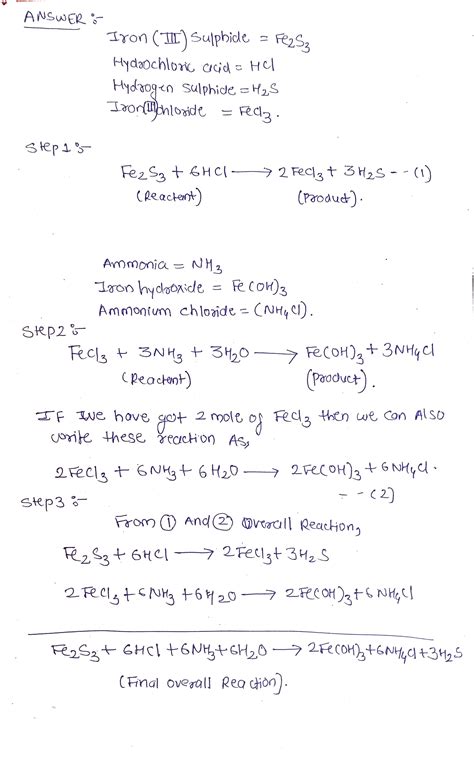 ANSWER :-
Iron (III) Sulphide = Fe2S3
Hydrochloric acid = HCl
Hydrogen Sulphide = H2S
Iron(III)chloride = FeCl3.
Step1:-
Fe2S3 + 6HCl → 2FeCl3 + 3H2S -- (1)
(Reactant) (Product).
Ammonia = NH3
Iron hydroxide = Fe(OH)3
Ammonium chloride = (NH4Cl).
Step2:-
FeCl3 + 3NH3 + 3H2O → Fe(OH)3 + 3NH4Cl
(Reactant) (Product).
If we have got 2 mole of FeCl3 then we can Also
write these reaction As,
2FeCl3 + 6NH3 + 6H2O → 2Fe(OH)3 + 6NH4Cl.
-- (2)
Step3:-
From ① And ② Overall Reaction,
Fe2S3 + 6HCl → 2FeCl3 + 3H2S
2FeCl3 + 6NH3 + 6H2O → 2Fe(OH)3 + 6NH4Cl
Fe2S3 + 6HCl + 6NH3 + 6H2O → 2Fe(OH)3 + 6NH4Cl + 3H2S
(Final overall Reaction).